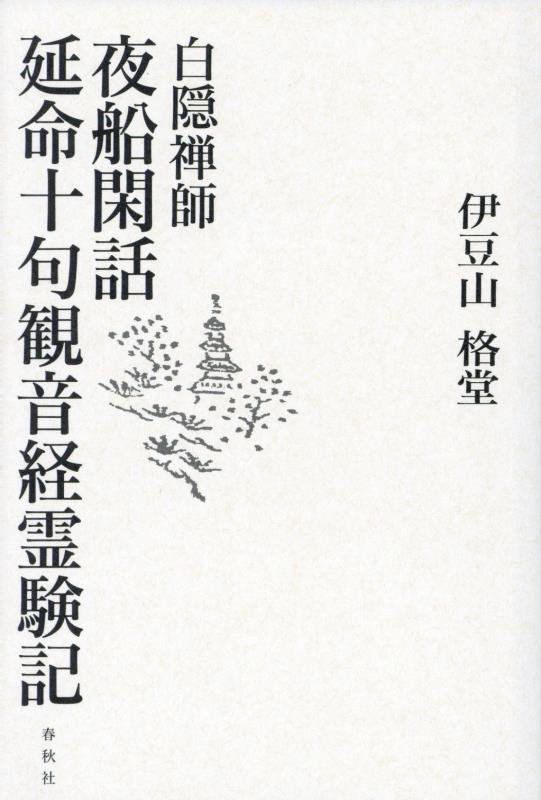 伊豆山 格堂
白隠禅師
夜船閑話
延命十句観音経霊験記
春秋社